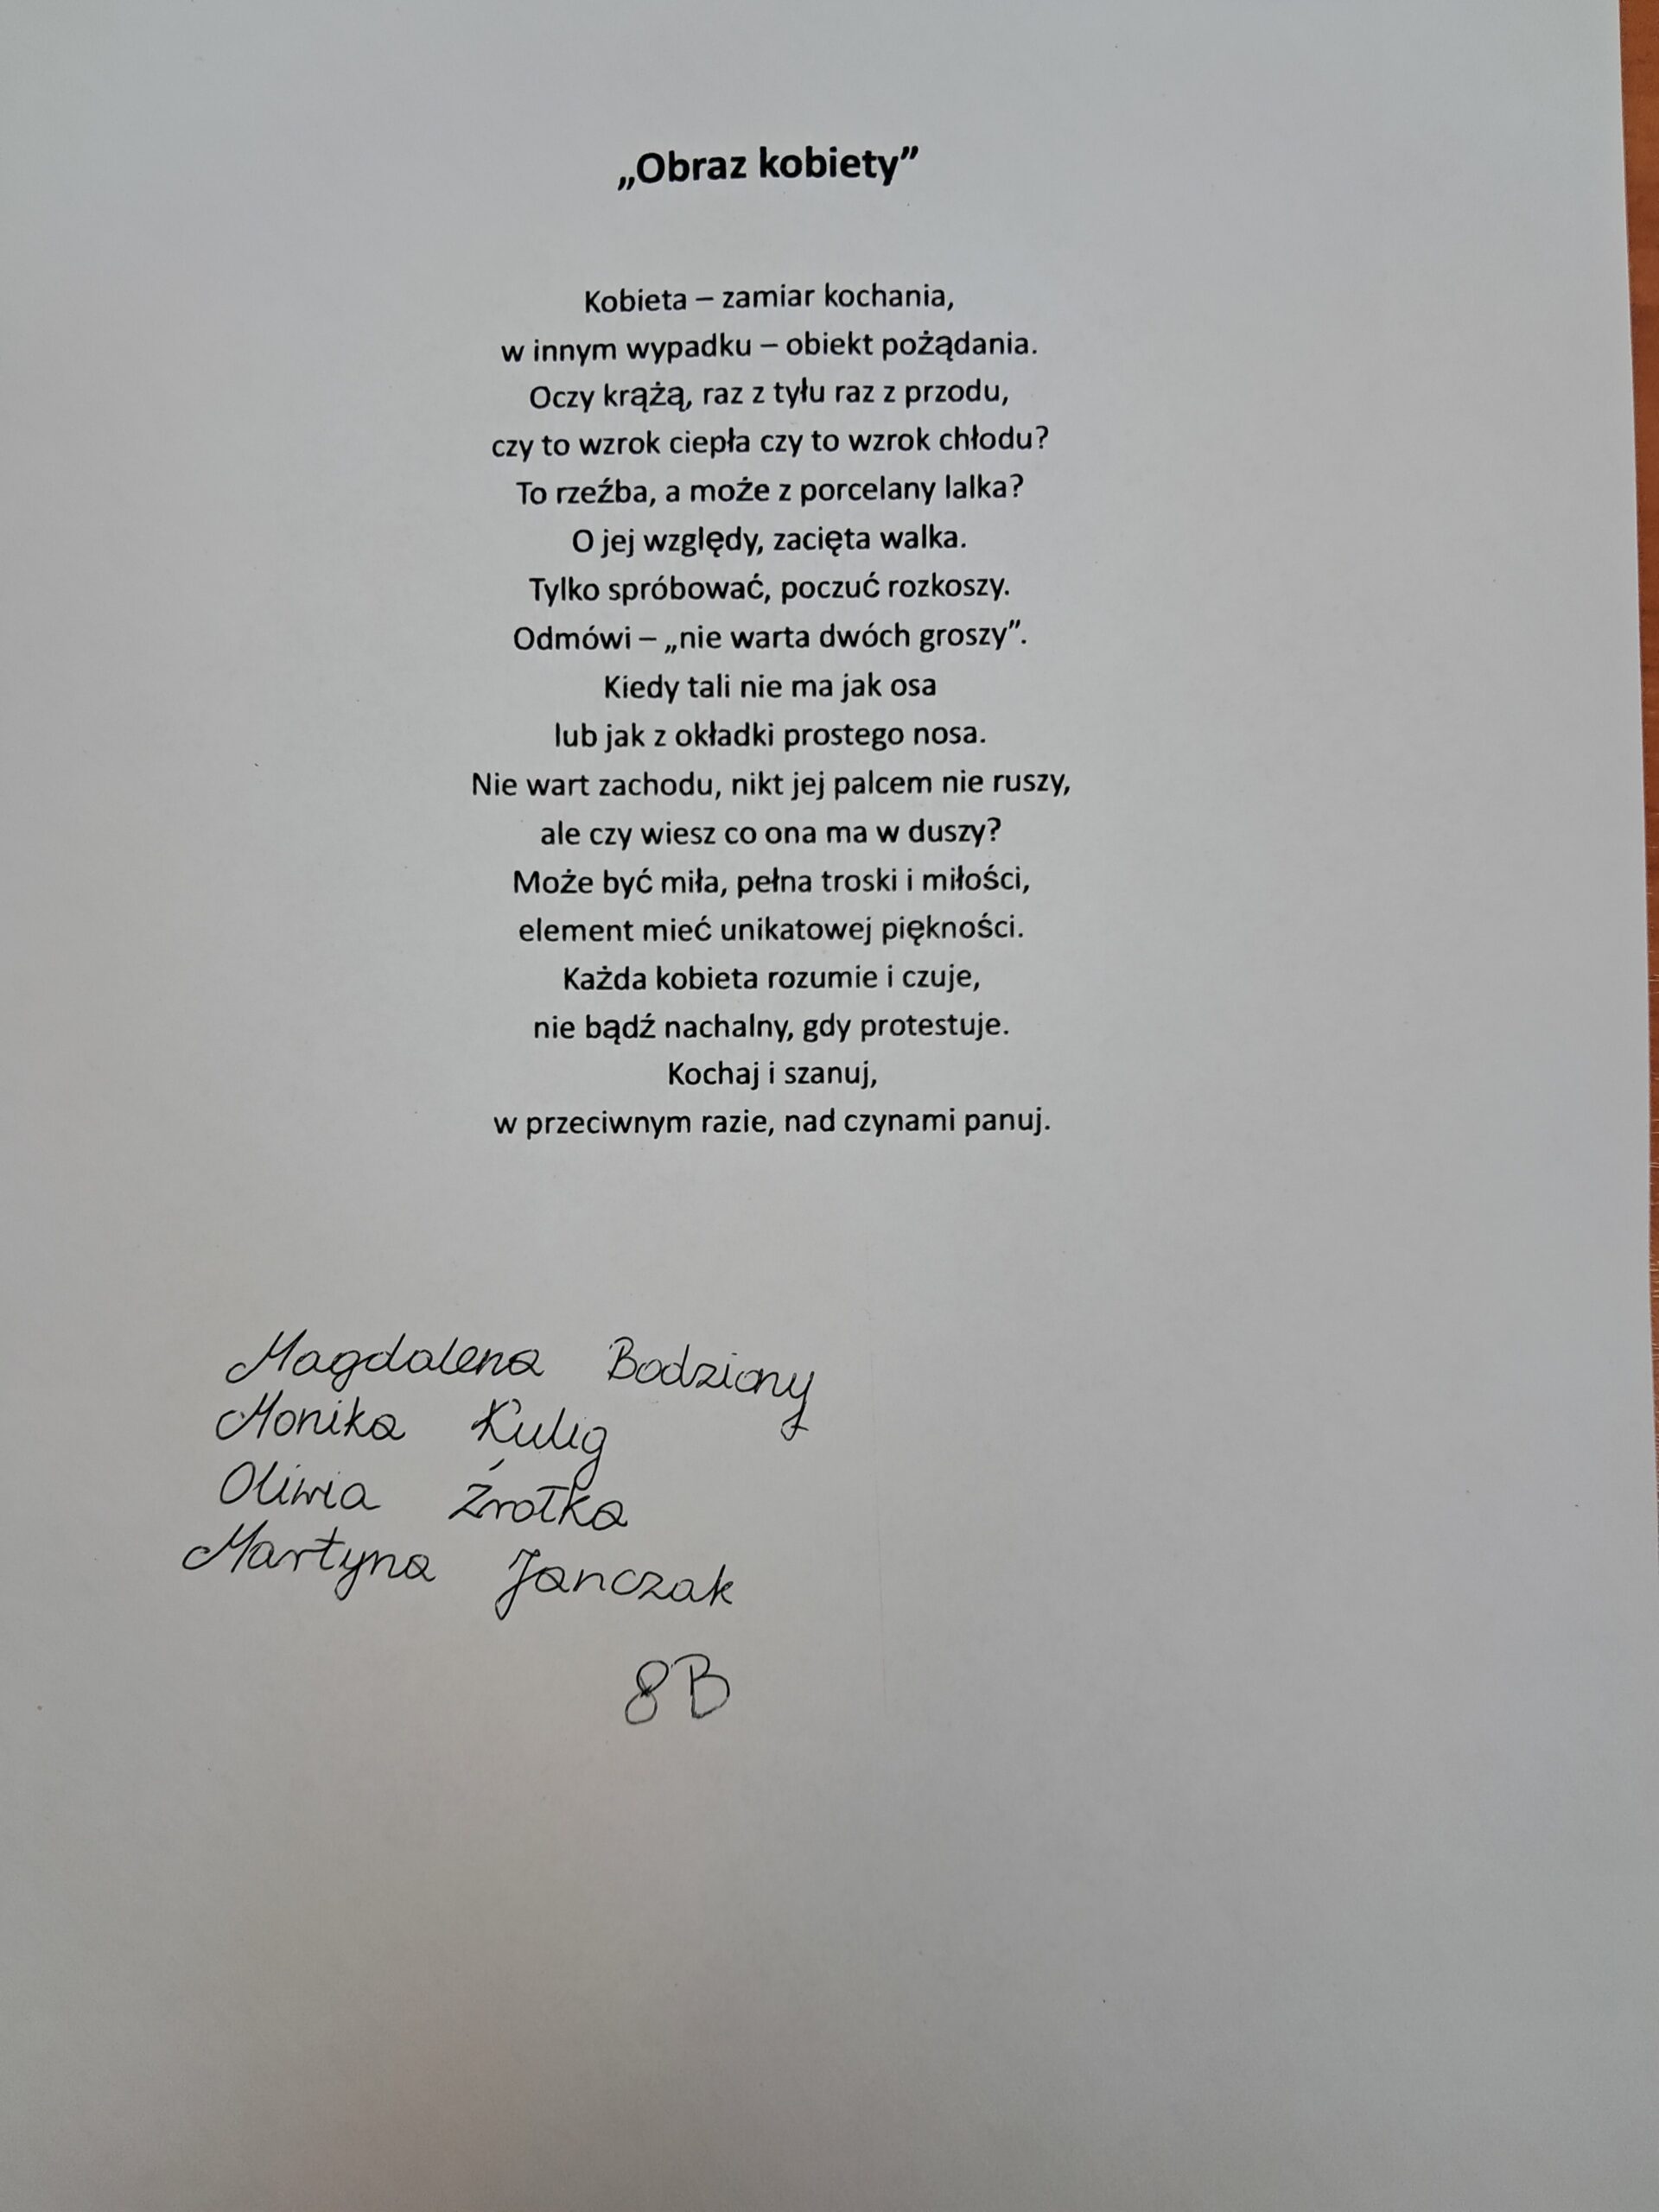 „Obraz kobiety”
Kobieta – zamiar kochania,
w innym wypadku – obiekt pożądania.
Oczy krążą, raz z tyłu raz z przodu,
czy to wzrok ciepła czy to wzrok chłodu?
To rzeźba, a może z porcelany lalka?
O jej względy, zacięta walka.
Tylko spróbować, poczuć rozkoszy.
Odmówi – „nie warta dwóch groszy”.
Kiedy tali nie ma jak osa
lub jak z okładki prostego nosa.
Nie wart zachodu, nikt jej palcem nie ruszy,
ale czy wiesz co ona ma w duszy?
Może być miła, pełna troski i miłości,
element mieć unikatowej piękności.
Każda kobieta rozumie i czuje,
nie bądź nachalny, gdy protestuje.
Kochaj i szanuj,
w przeciwnym razie, nad czynami panuj.
Magdalena Bodziony
Monika Kulig
Oliwia Źrałka
Martyna Janczak
8B